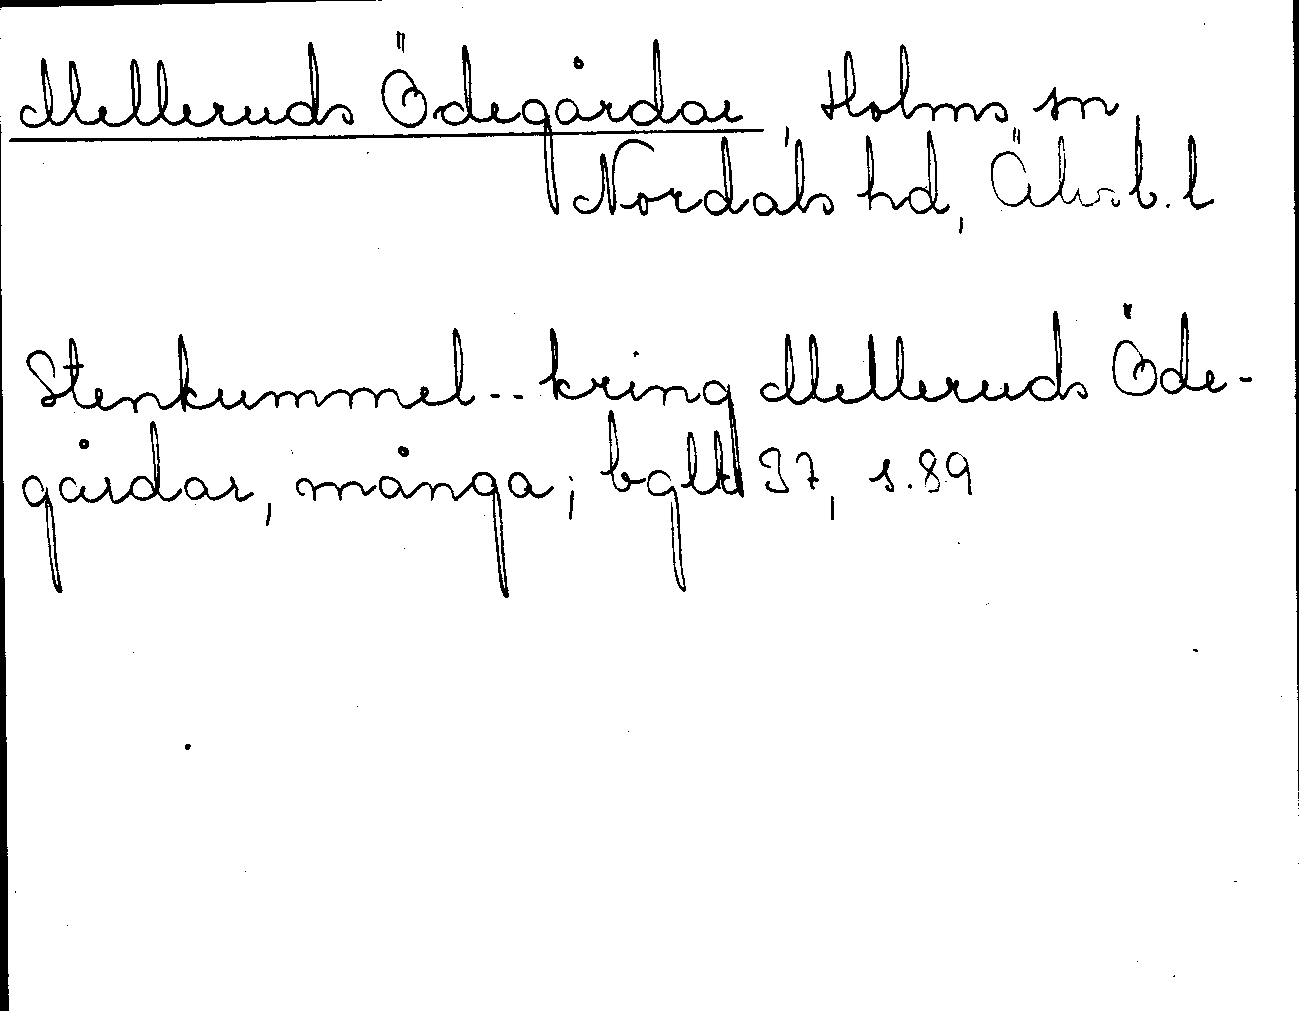 Melleruds Ödegårdar, Holms sn
Nordals hd, Älvsb. l
Stenkummel.. kring Melleruds Öde-
gårdar, många; bglld 37, s. 89